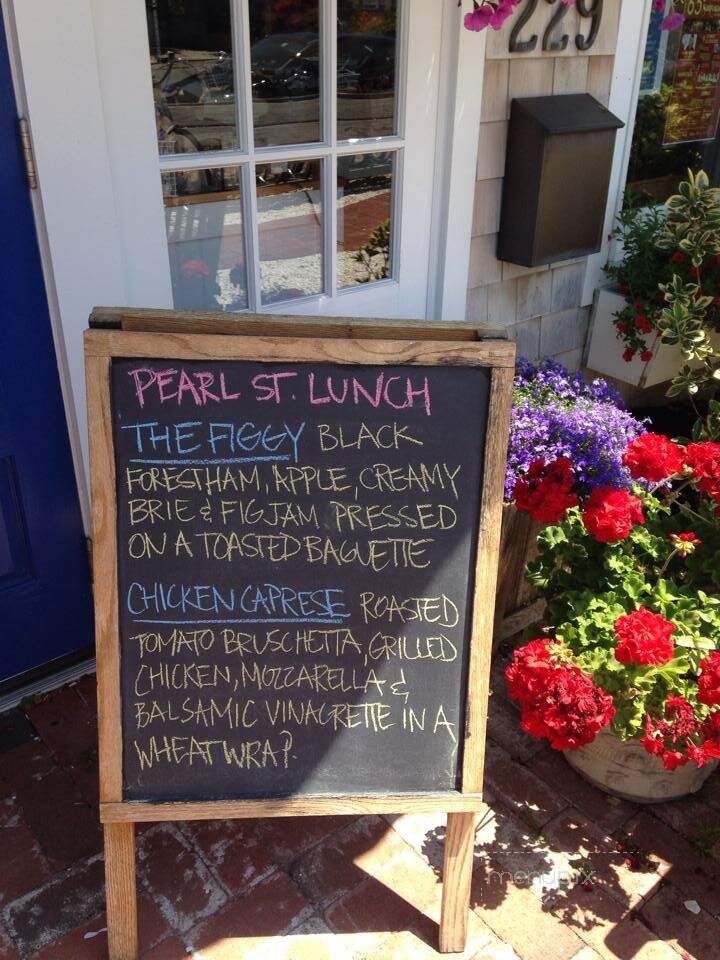 229
PEARL ST. LUNCH
THE FIGGY BLACK
FOREST HAM, APPLE, CREAMY
BRIE & FIG JAM PRESSED
ON A TOASTED BAGUETTE
CHICKEN CAPRESE ROASTED
TOMATO BRUSCHETTA, GRILLED
CHICKEN, MOZZARELLA &
BALSAMIC VINAGRETTE IN A
WHEAT WRAP.
menupix